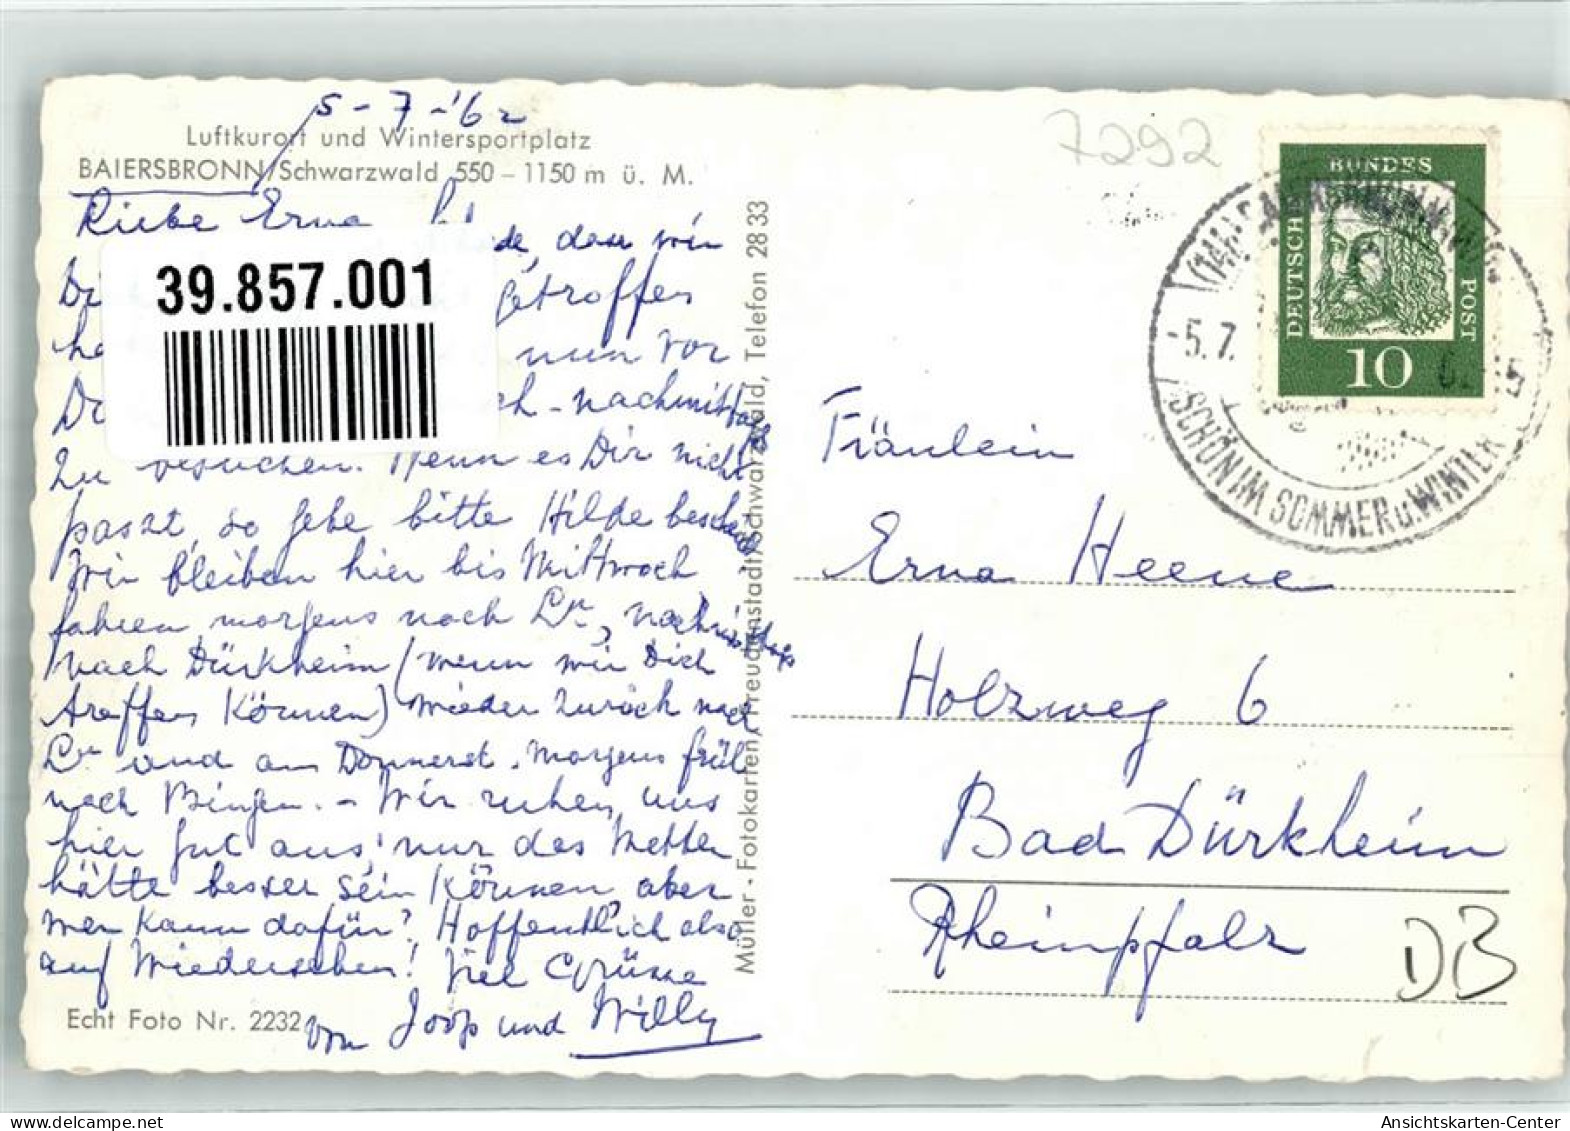 5-7-'62
Luftkurort und Wintersportplatz
BAIERSBRONN/Schwarzwald 550 – 1150 m ü. M.
Liebe Erna
de, dass wir
getroffen
39.857.001
nun vor
ch-nachmittag
zu besuchen. Wenn es Dir nicht
passt, so gebe bitte Hilde bescheid
Wir bleiben hier bis Mittwoch
fahren morgens nach nachmittags
nach Dürkheim (wenn wir Dich
treffen können) wieder zurück nach
und am Donnerst. morgens früh
nach Bingen. - Wir ruhen uns
hier gut aus, nur das Wetter
hätte besser sein können, aber
wer kann dafür? Hoffentlich also
auf Wiedersehen! Viel Grüsse
von Joop und Willy
Echt Foto Nr. 2232
Müller - Fotokarten, Freudenstadt/Schwarzwald, Telefon 28 33
7292
DEUTSCHE BUNDESPOST
10
-5.7.
SCHÖN IM SOMMER u. WINTER
Fräulein
Erna Heene
Holzweg 6
Bad Dürkheim
Rheinpfalz
DB
www.delcampe.net
Ansichtskarten-Center